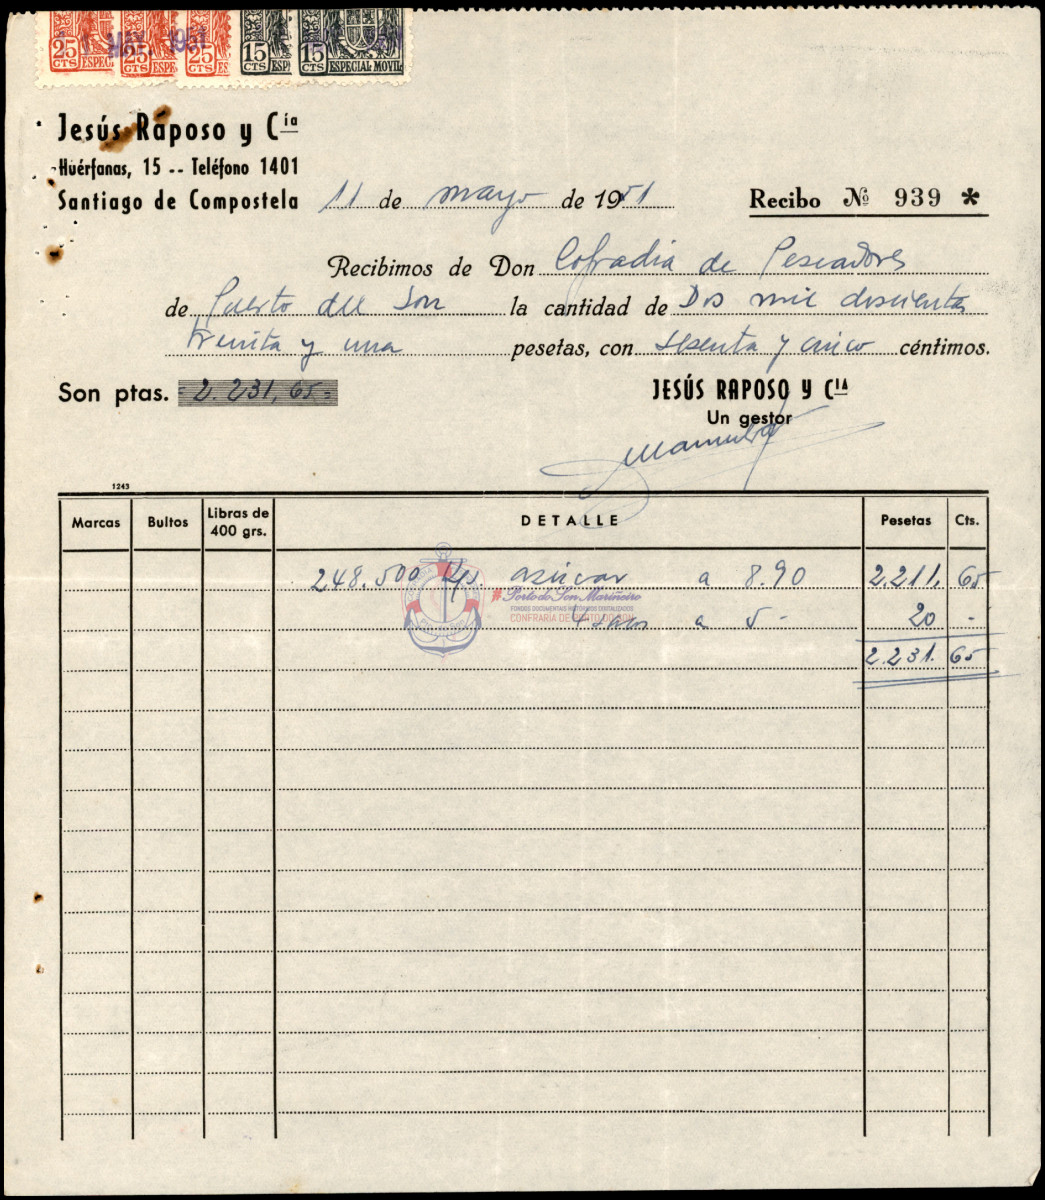 25 CTS ESPEC. 25 CTS ESP 25 CTS ES 15 CTS ESPE 15 CTS ESPECIAL MOVIL
1 MAY. 1951
Jesús Raposo y Cía
Huérfanas, 15 -- Teléfono 1401
Santiago de Compostela 11 de mayo de 1951 Recibo Nº 939 *
Recibimos de Don Cofradia de Pescadores
de Puerto del Son la cantidad de Dos mil doscientas
treinta y una pesetas, con sesenta y cinco céntimos.
Son ptas. = 2.231,65 =
JESÚS RAPOSO Y CIA
Un gestor
1243
Marcas Bultos Libras de 400 grs. DETALLE Pesetas Cts.
248.500 Kgs. azúcar a 8.90 2.211. 65
#Porto do Son Mariñeiro
FONDOS DOCUMENTAIS HISTÓRICOS DIGITALIZADOS
CONFRARÍA DE PORTO DO SON
4 sacos a 5 - 20 -
2.231. 65